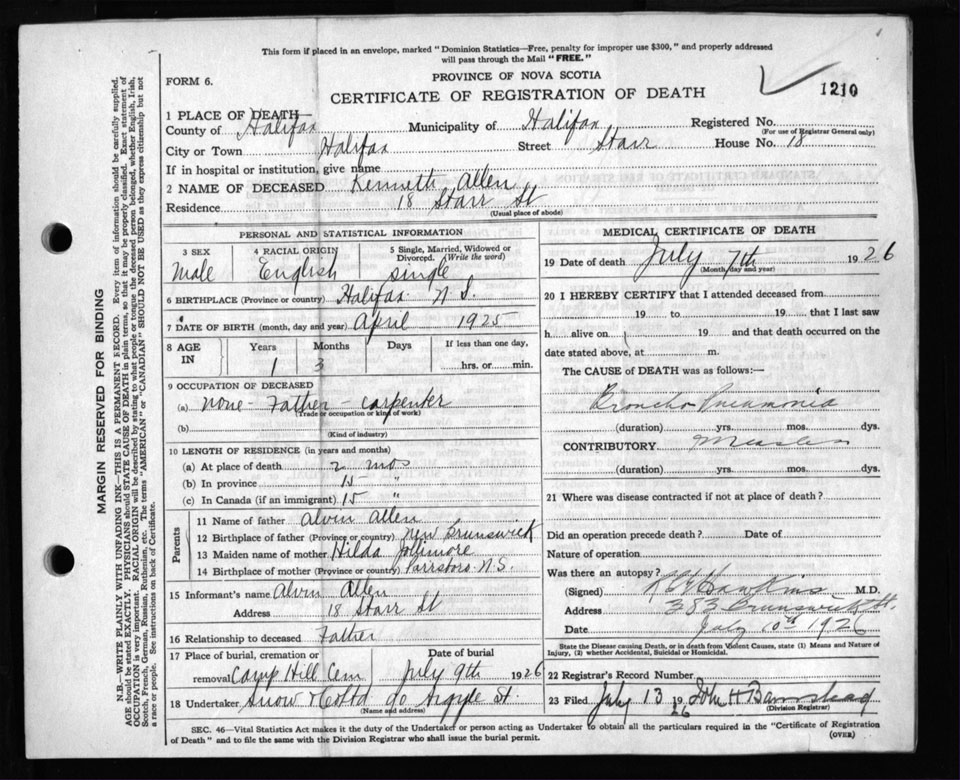 This form if placed in an envelope, marked "Dominion Statistics—Free, penalty for improper use $300," and properly addressed
will pass through the Mail "FREE."
FORM 6.
PROVINCE OF NOVA SCOTIA
CERTIFICATE OF REGISTRATION OF DEATH
1210
1 PLACE OF DEATH—
County of Halifax Municipality of Halifax Registered No.
(For use of Registrar General only)
City or Town Halifax Street Starr House No. 18
If in hospital or institution, give name
2 NAME OF DECEASED Kenneth Allen
Residence 18 Starr St
(Usual place of abode)
PERSONAL AND STATISTICAL INFORMATION
3 SEX 4 RACIAL ORIGIN 5 Single, Married, Widowed or
Divorced. (Write the word)
Male English single
6 BIRTHPLACE (Province or country) Halifax N.S.
7 DATE OF BIRTH (month, day and year) April 1925
8 AGE IN Years Months Days If less than one day,
1 3 hrs. or min.
9 OCCUPATION OF DECEASED
(a) None - Father - carpenter
(Trade or occupation or kind of work)
(b)
(Kind of industry)
10 LENGTH OF RESIDENCE (in years and months)
(a) At place of death 2 mos
(b) In province 15 "
(c) In Canada (if an immigrant) 15 "
Parents
11 Name of father Alvin Allen
12 Birthplace of father (Province or country) New Brunswick
13 Maiden name of mother Hilda
14 Birthplace of mother (Province or country) N.S.
15 Informant's name Alvin Allen
Address 18 Starr St
16 Relationship to deceased Father
17 Place of burial, cremation or Date of burial
removal Camp Hill Cem July 9th 1926
18 Undertaker Snow & Co Ltd 90 Argyle St.
(Name and address)
MEDICAL CERTIFICATE OF DEATH
19 Date of death July 7th 1926
(Month, day and year)
20 I HEREBY CERTIFY that I attended deceased from
19 to 19 that I last saw
h alive on 19 and that death occurred on the
date stated above, at m.
The CAUSE of DEATH was as follows:—
Broncho Pneumonia
(duration) yrs. mos. dys.
CONTRIBUTORY Measles
(duration) yrs. mos. dys.
21 Where was disease contracted if not at place of death?
Did an operation precede death? Date of
Nature of operation
Was there an autopsy?
(Signed) M.D.
Address 383 Brunswick St.
Date July 10th 1926
State the Disease causing Death, or in death from Violent Causes, state (1) Means and Nature of
Injury, (2) whether Accidental, Suicidal or Homicidal.
22 Registrar's Record Number
23 Filed July 13 1926 John H
(Division Registrar)
SEC. 46—Vital Statistics Act makes it the duty of the Undertaker or person acting as Undertaker to obtain all the particulars required in the "Certificate of Registration
of Death" and to file the same with the Division Registrar who shall issue the burial permit.
(OVER)
MARGIN RESERVED FOR BINDING
N.B.—WRITE PLAINLY WITH UNFADING INK—THIS IS A PERMANENT RECORD. Every item of information should be carefully supplied.
AGE should be stated EXACTLY. PHYSICIANS should STATE CAUSE OF DEATH in plain terms, so that it may be properly classified. Exact statement of
OCCUPATION is very important. RACIAL ORIGIN will be described by stating to what people or tongue the deceased person belonged, whether English, Irish,
Scotch, French, German, Russian, Ruthenian, etc. The terms "AMERICAN" or "CANADIAN" SHOULD NOT BE USED as they express citizenship but not
a race or people. See instructions on back of Certificate.